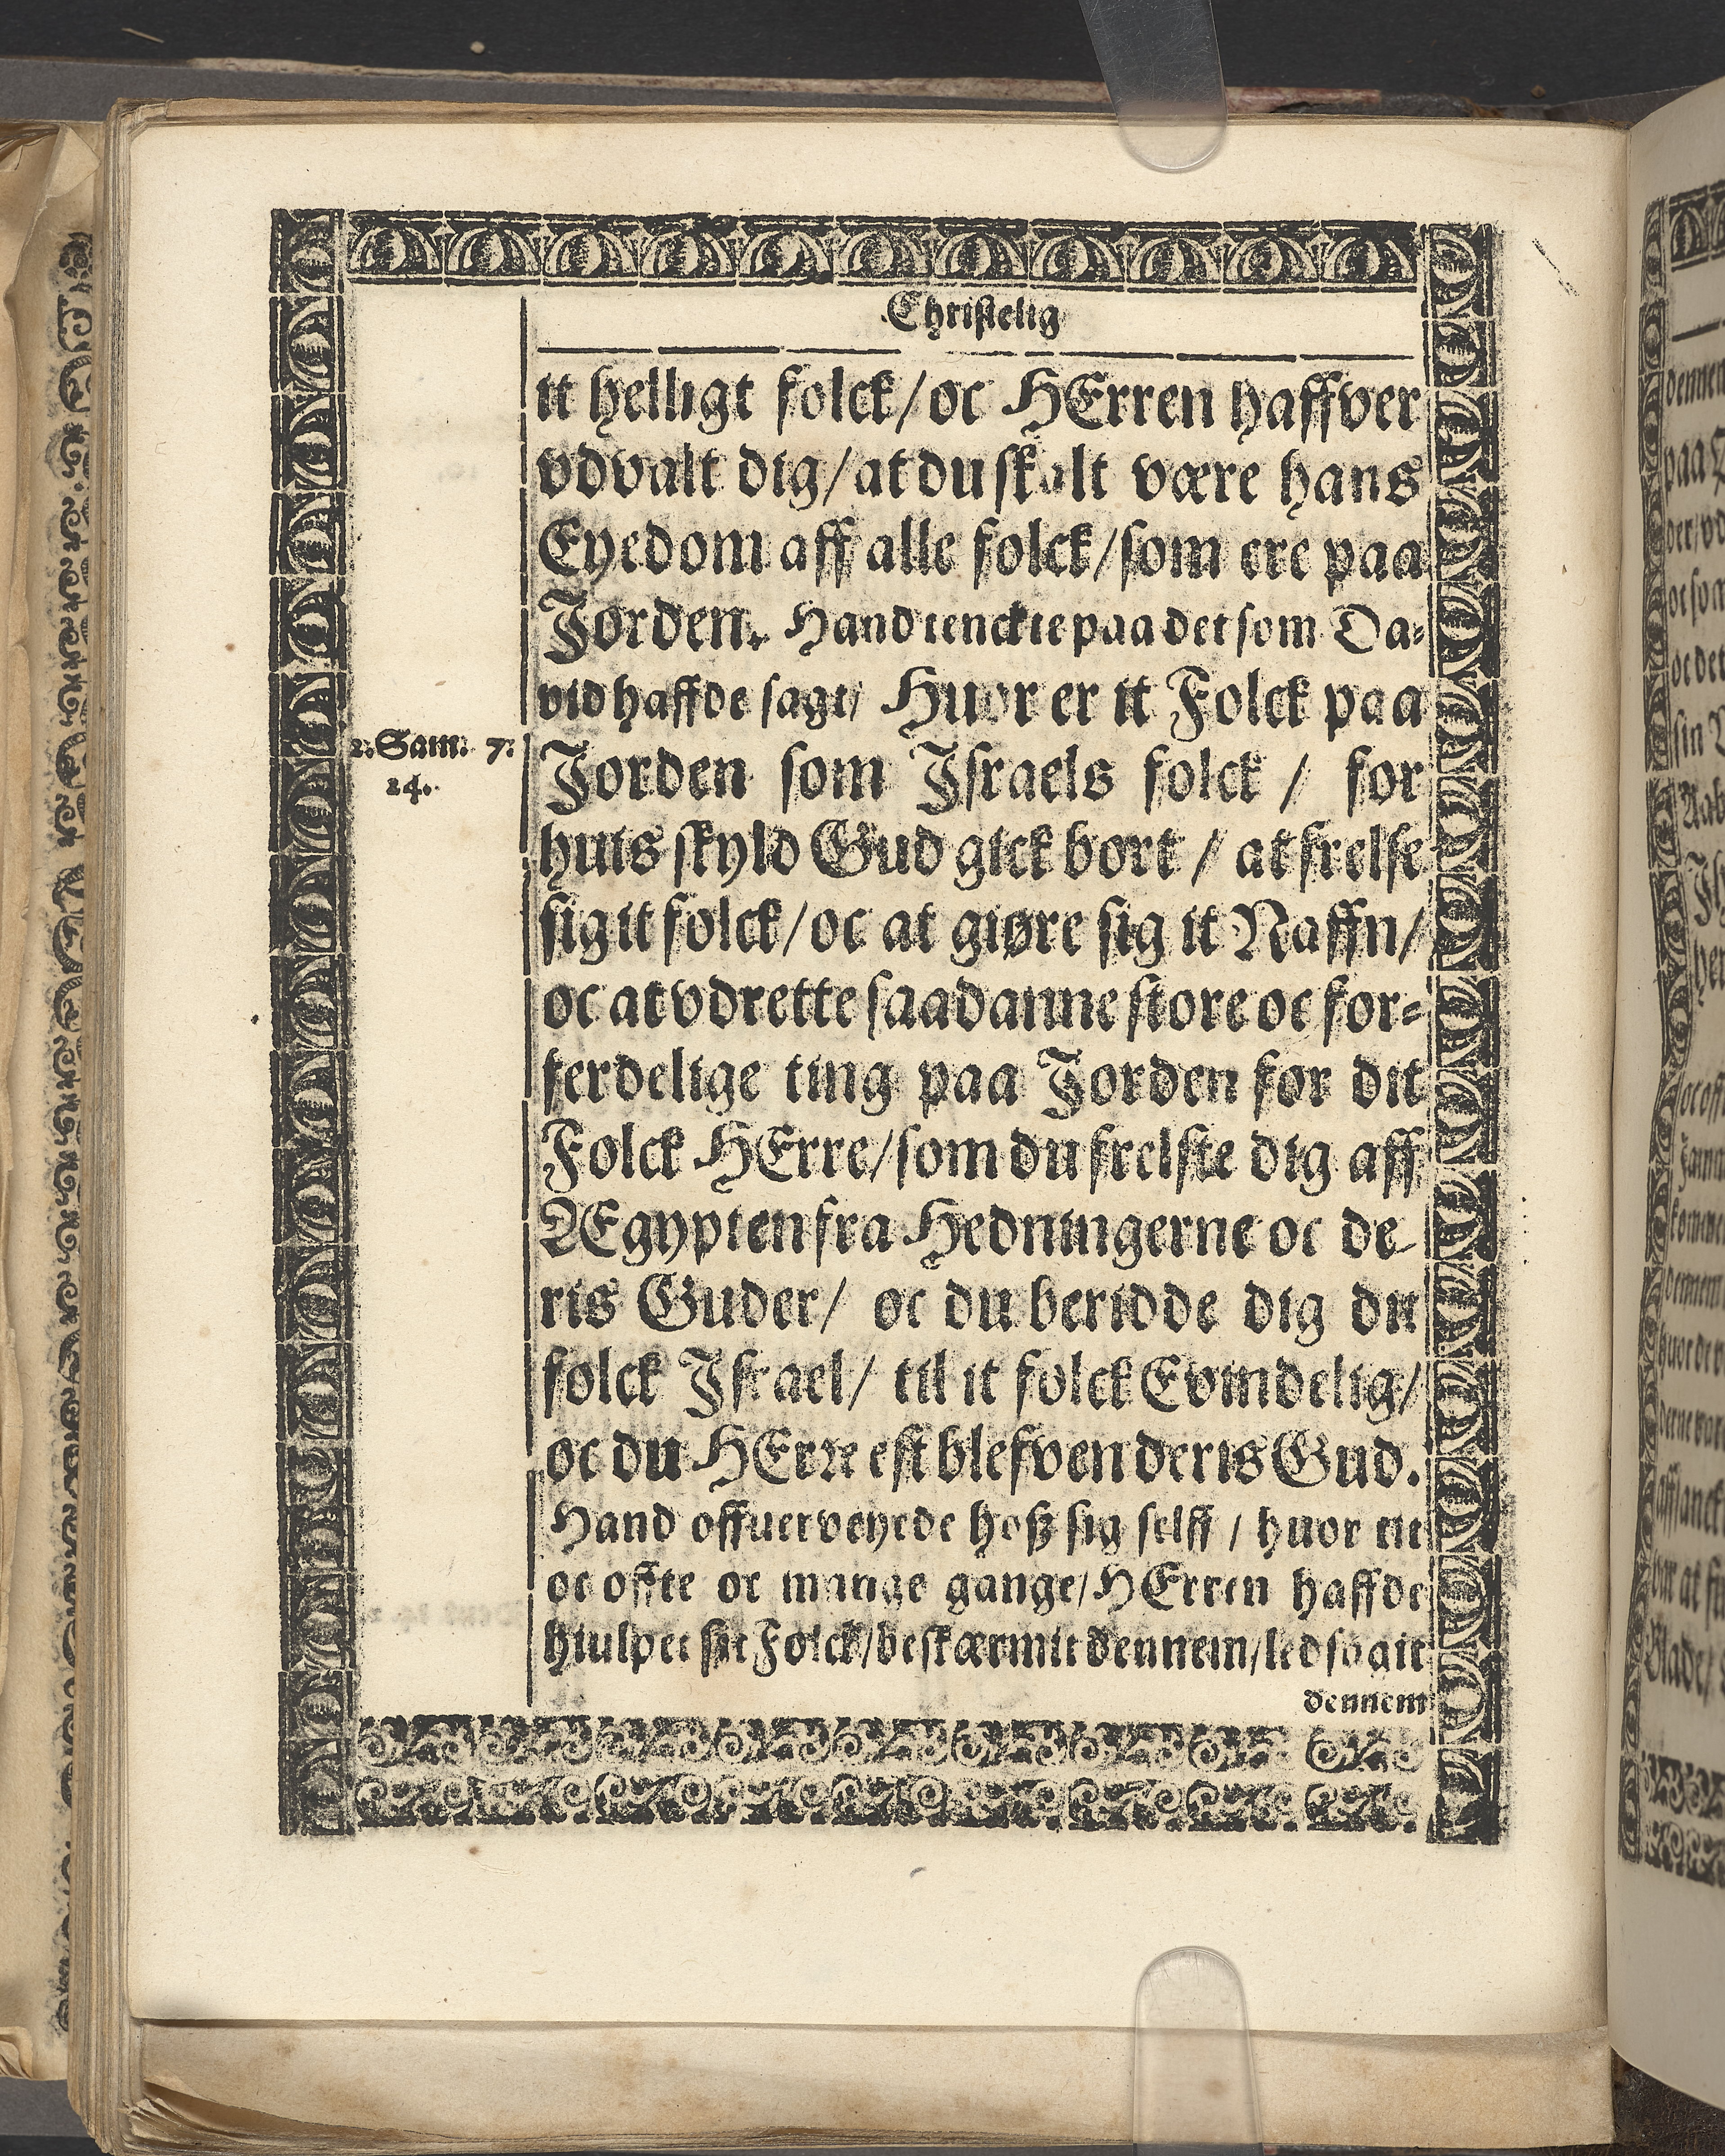 Christelig
it helligt folck/ oc HErren haffver
vdvalt dig/ at du skalt være hans
Eyedom aff alle folck/ som ere paa
Jorden. Hand tenckte paa det som Da-
vid haffde sagt/ Huor er it Folck paa
2. Sam. 7.
24.
Jorden som Israels folck / for
huis skyld Gud gick bort / at frelse
sig it folck/ oc at giøre sig it Naffn/
oc at vdrette saadanne store oc for-
ferdelige ting paa Jorden for dit
Folck HErre/ som du frelste dig aff
Ægypten fra Hedningerne oc de-
ris Guder/ oc du beridde dig dit
folck Israel/ til it folck Evindelig/
oc du HErre est blefven deris Gud.
Hand offuerveyede hoß sig selff / huor tit
oc offte oc mange gange/ HErren haffde
hiulpet sit Folck/ beskærmit dennem/ ledsagit
dennem